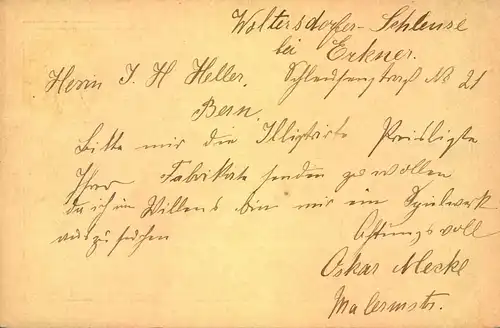 Woltersdorfer-Schleuse
bei Erkner.
Herrn J. H Heller, Schleusenstraß No 21
Bern.
Bitte mir die Illustrirte Preisliste
Ihrer Fabrikate senden zu wollen
da ich im Willens bin mir ein Spielwerk
auszusuchen Achtungsvoll
Oskar Mecke
Malermstr.